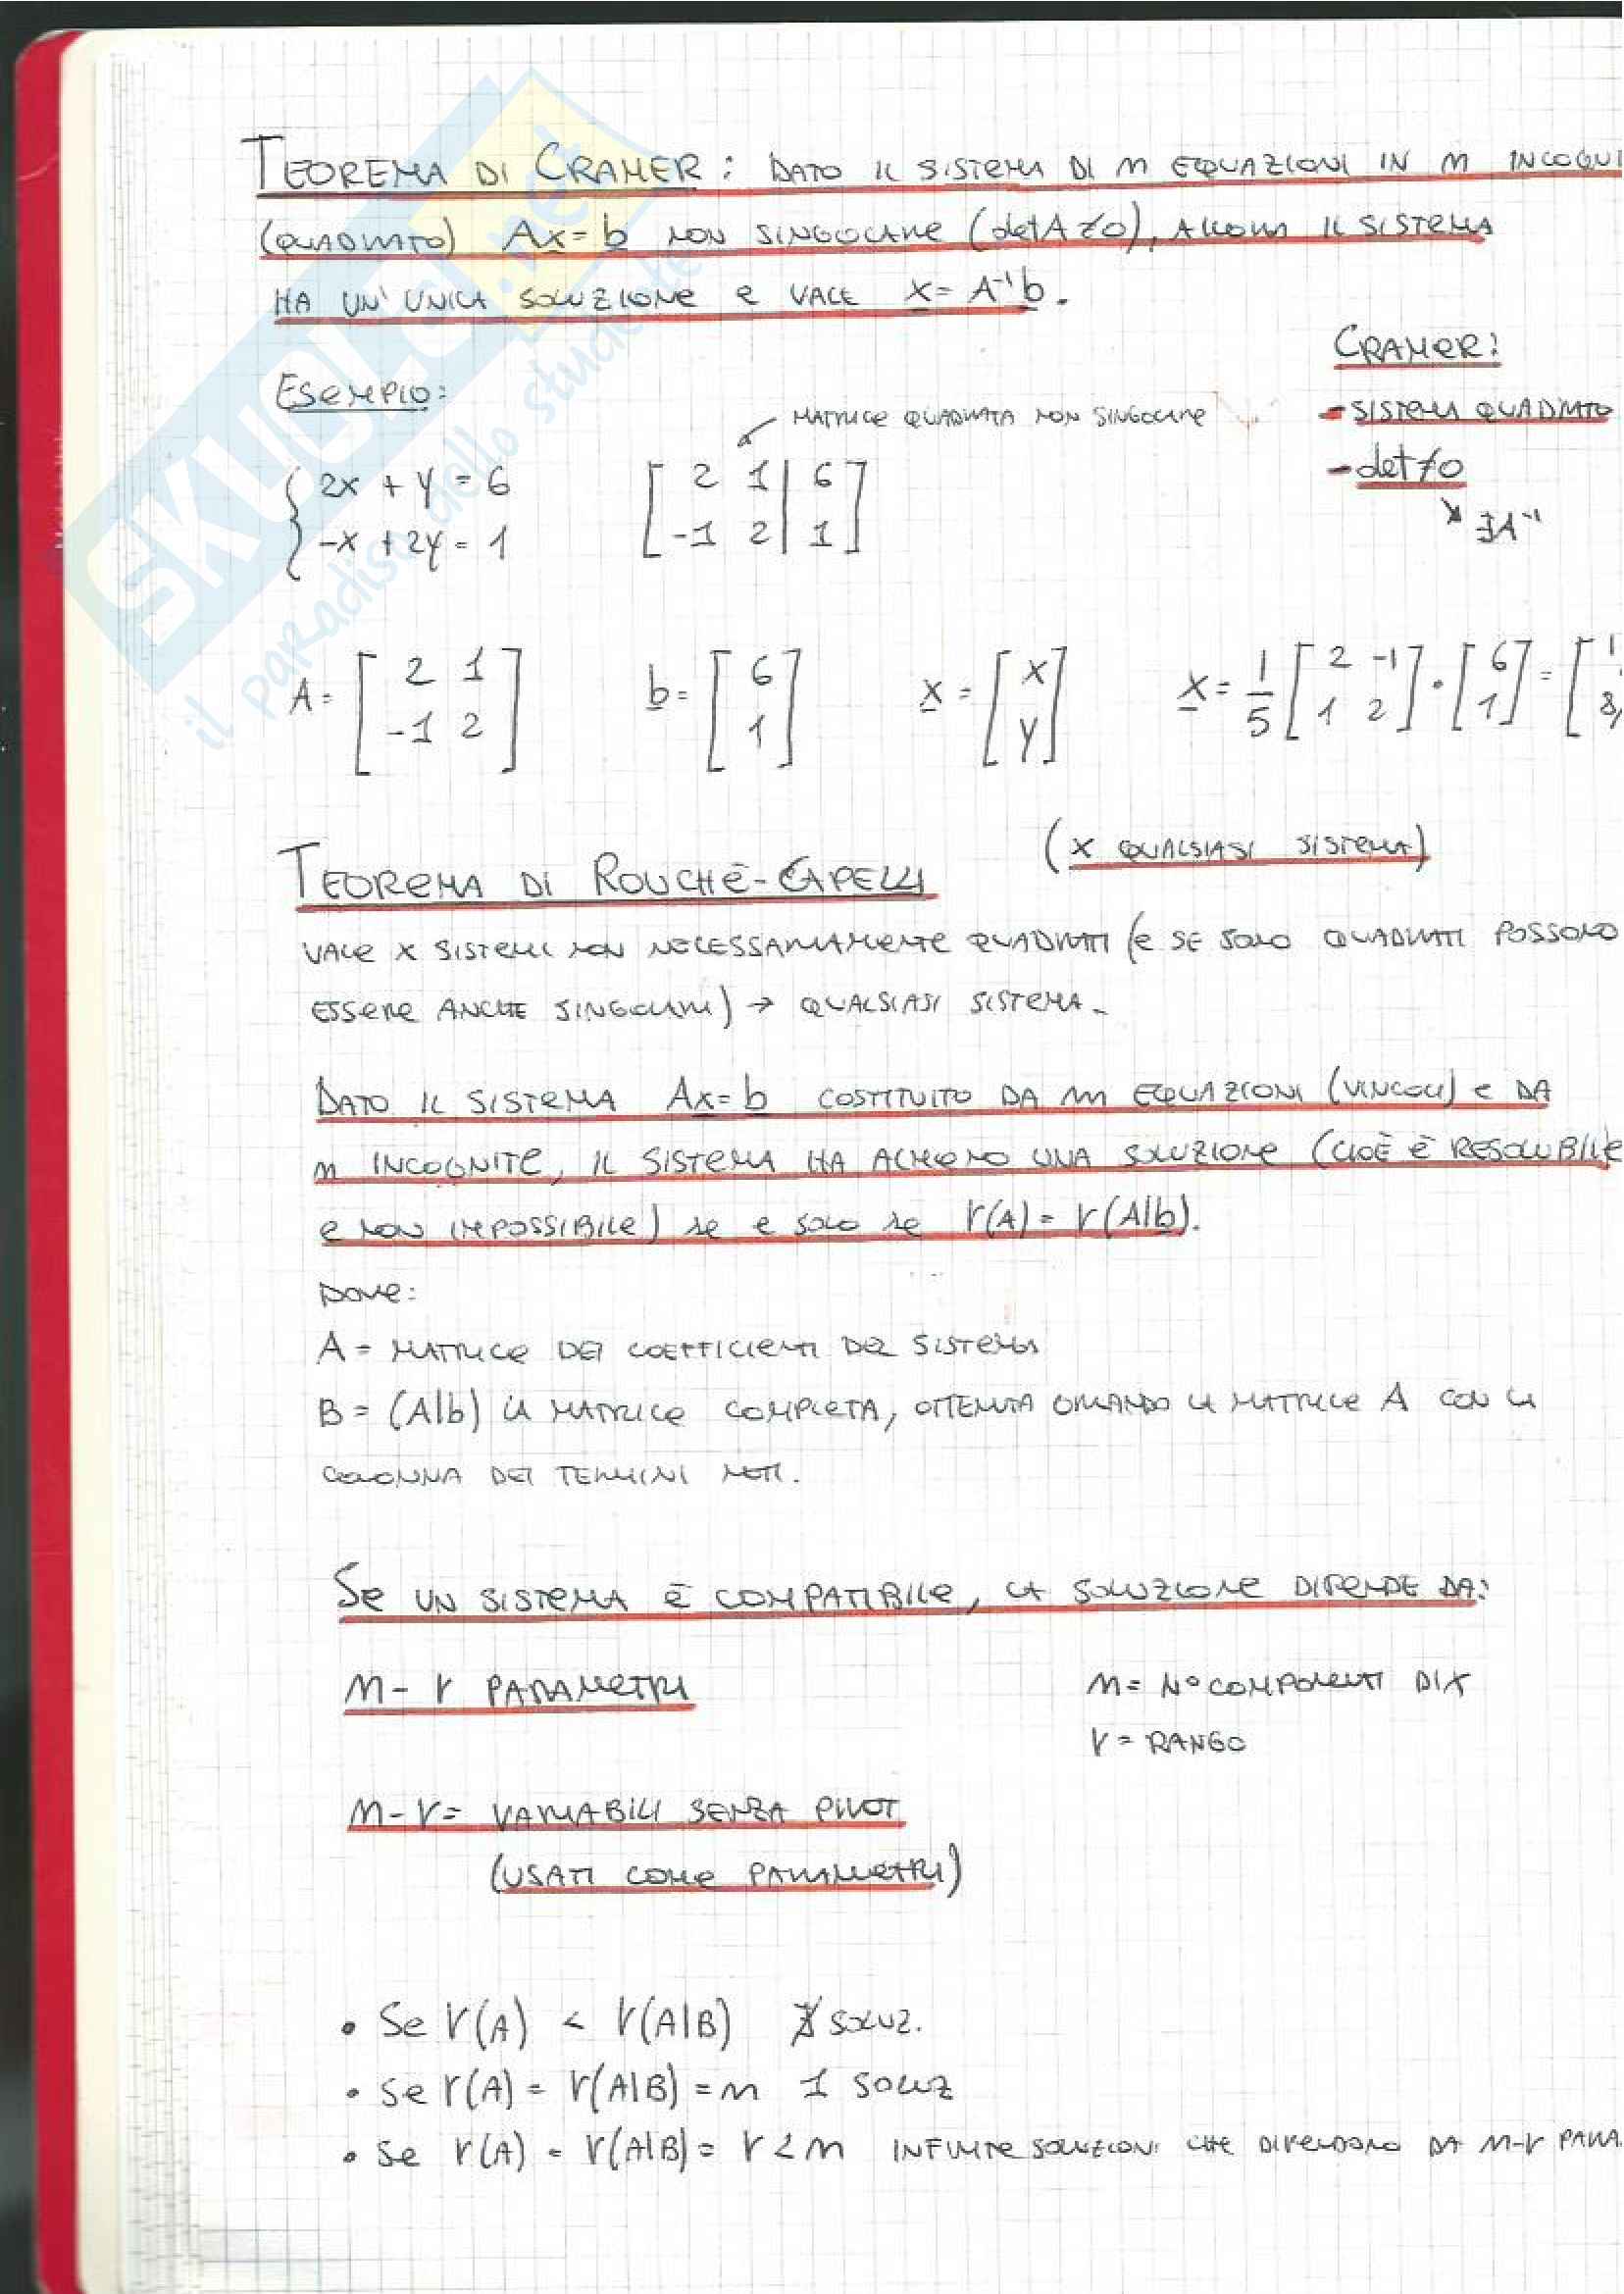 TEOREMA DI CRAMER: DATO IL SISTEMA DI n EQUAZIONI IN n INCOGNI
(QUADRATO) Ax = b NON SINGOLARE (det A ≠ 0), ALLORA IL SISTEMA
HA UN'UNICA SOLUZIONE E VALE x = A⁻¹b.
CRAMER:
- SISTEMA QUADRATO
- det ≠ 0
↘ ∃A⁻¹
ESEMPIO:
MATRICE QUADRATA NON SINGOLARE
{ 2x + y = 6
-x + 2y = 1
[ 2 1 | 6 ]
[ -1 2 | 1 ]
A = [ 2 1 ] b = [ 6 ] x = [ x ] x = 1/5 [ 2 -1 ] · [ 6 ] = [ 1
[ -1 2 ] [ 1 ] [ y ] [ 1 2 ] [ 1 ] [ 8/
TEOREMA DI ROUCHÈ-CAPELLI (x QUALSIASI SISTEMA)
VALE x SISTEMI NON NECESSARIAMENTE QUADRATI (E SE SONO QUADRATI POSSONO
ESSERE ANCHE SINGOLARI) → QUALSIASI SISTEMA.
DATO IL SISTEMA Ax = b COSTITUITO DA m EQUAZIONI (VINCOLI) E DA
n INCOGNITE, IL SISTEMA HA ALMENO UNA SOLUZIONE (CIOÈ È RESOLUBILE
E NON IMPOSSIBILE) se e solo se r(A) = r(A|b).
DOVE:
A = MATRICE DEI COEFFICIENTI DEL SISTEMA
B = (A|b) LA MATRICE COMPLETA, OTTENUTA ORLANDO LA MATRICE A CON LA
COLONNA DEI TERMINI NOTI.
SE UN SISTEMA È COMPATIBILE, LA SOLUZIONE DIPENDE DA:
n - r PARAMETRI
n = N° COMPONENTI DI X
r = RANGO
n - r = VARIABILI SENZA PIVOT
(USATI COME PARAMETRI)
• Se r(A) < r(A|B) ∄ SOLUZ.
• Se r(A) = r(A|B) = n 1 SOLUZ
• Se r(A) = r(A|B) = r < n INFINITE SOLUZIONI CHE DIPENDONO DA n-r PARA
SKUOLA.net
il paradiso dello studente